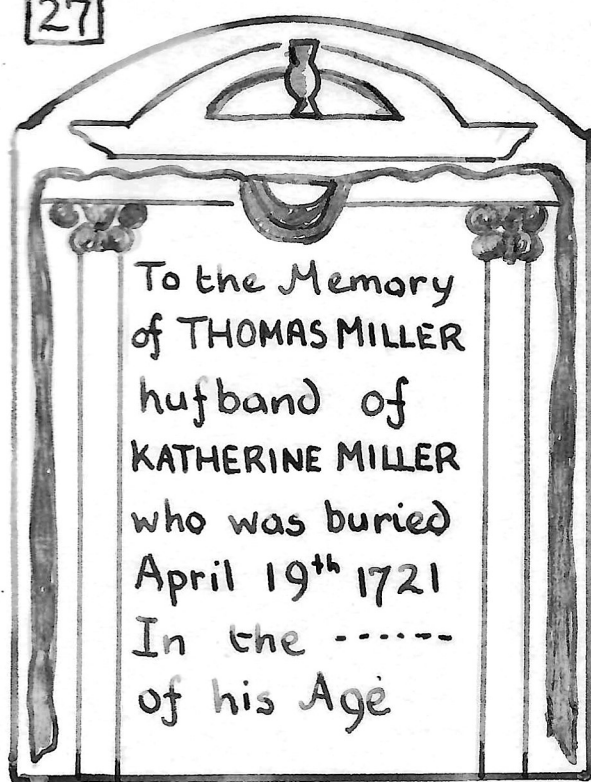 27
To the Memory
of THOMAS MILLER
hufband of
KATHERINE MILLER
who was buried
April 19th 1721
In the ------
of his Age